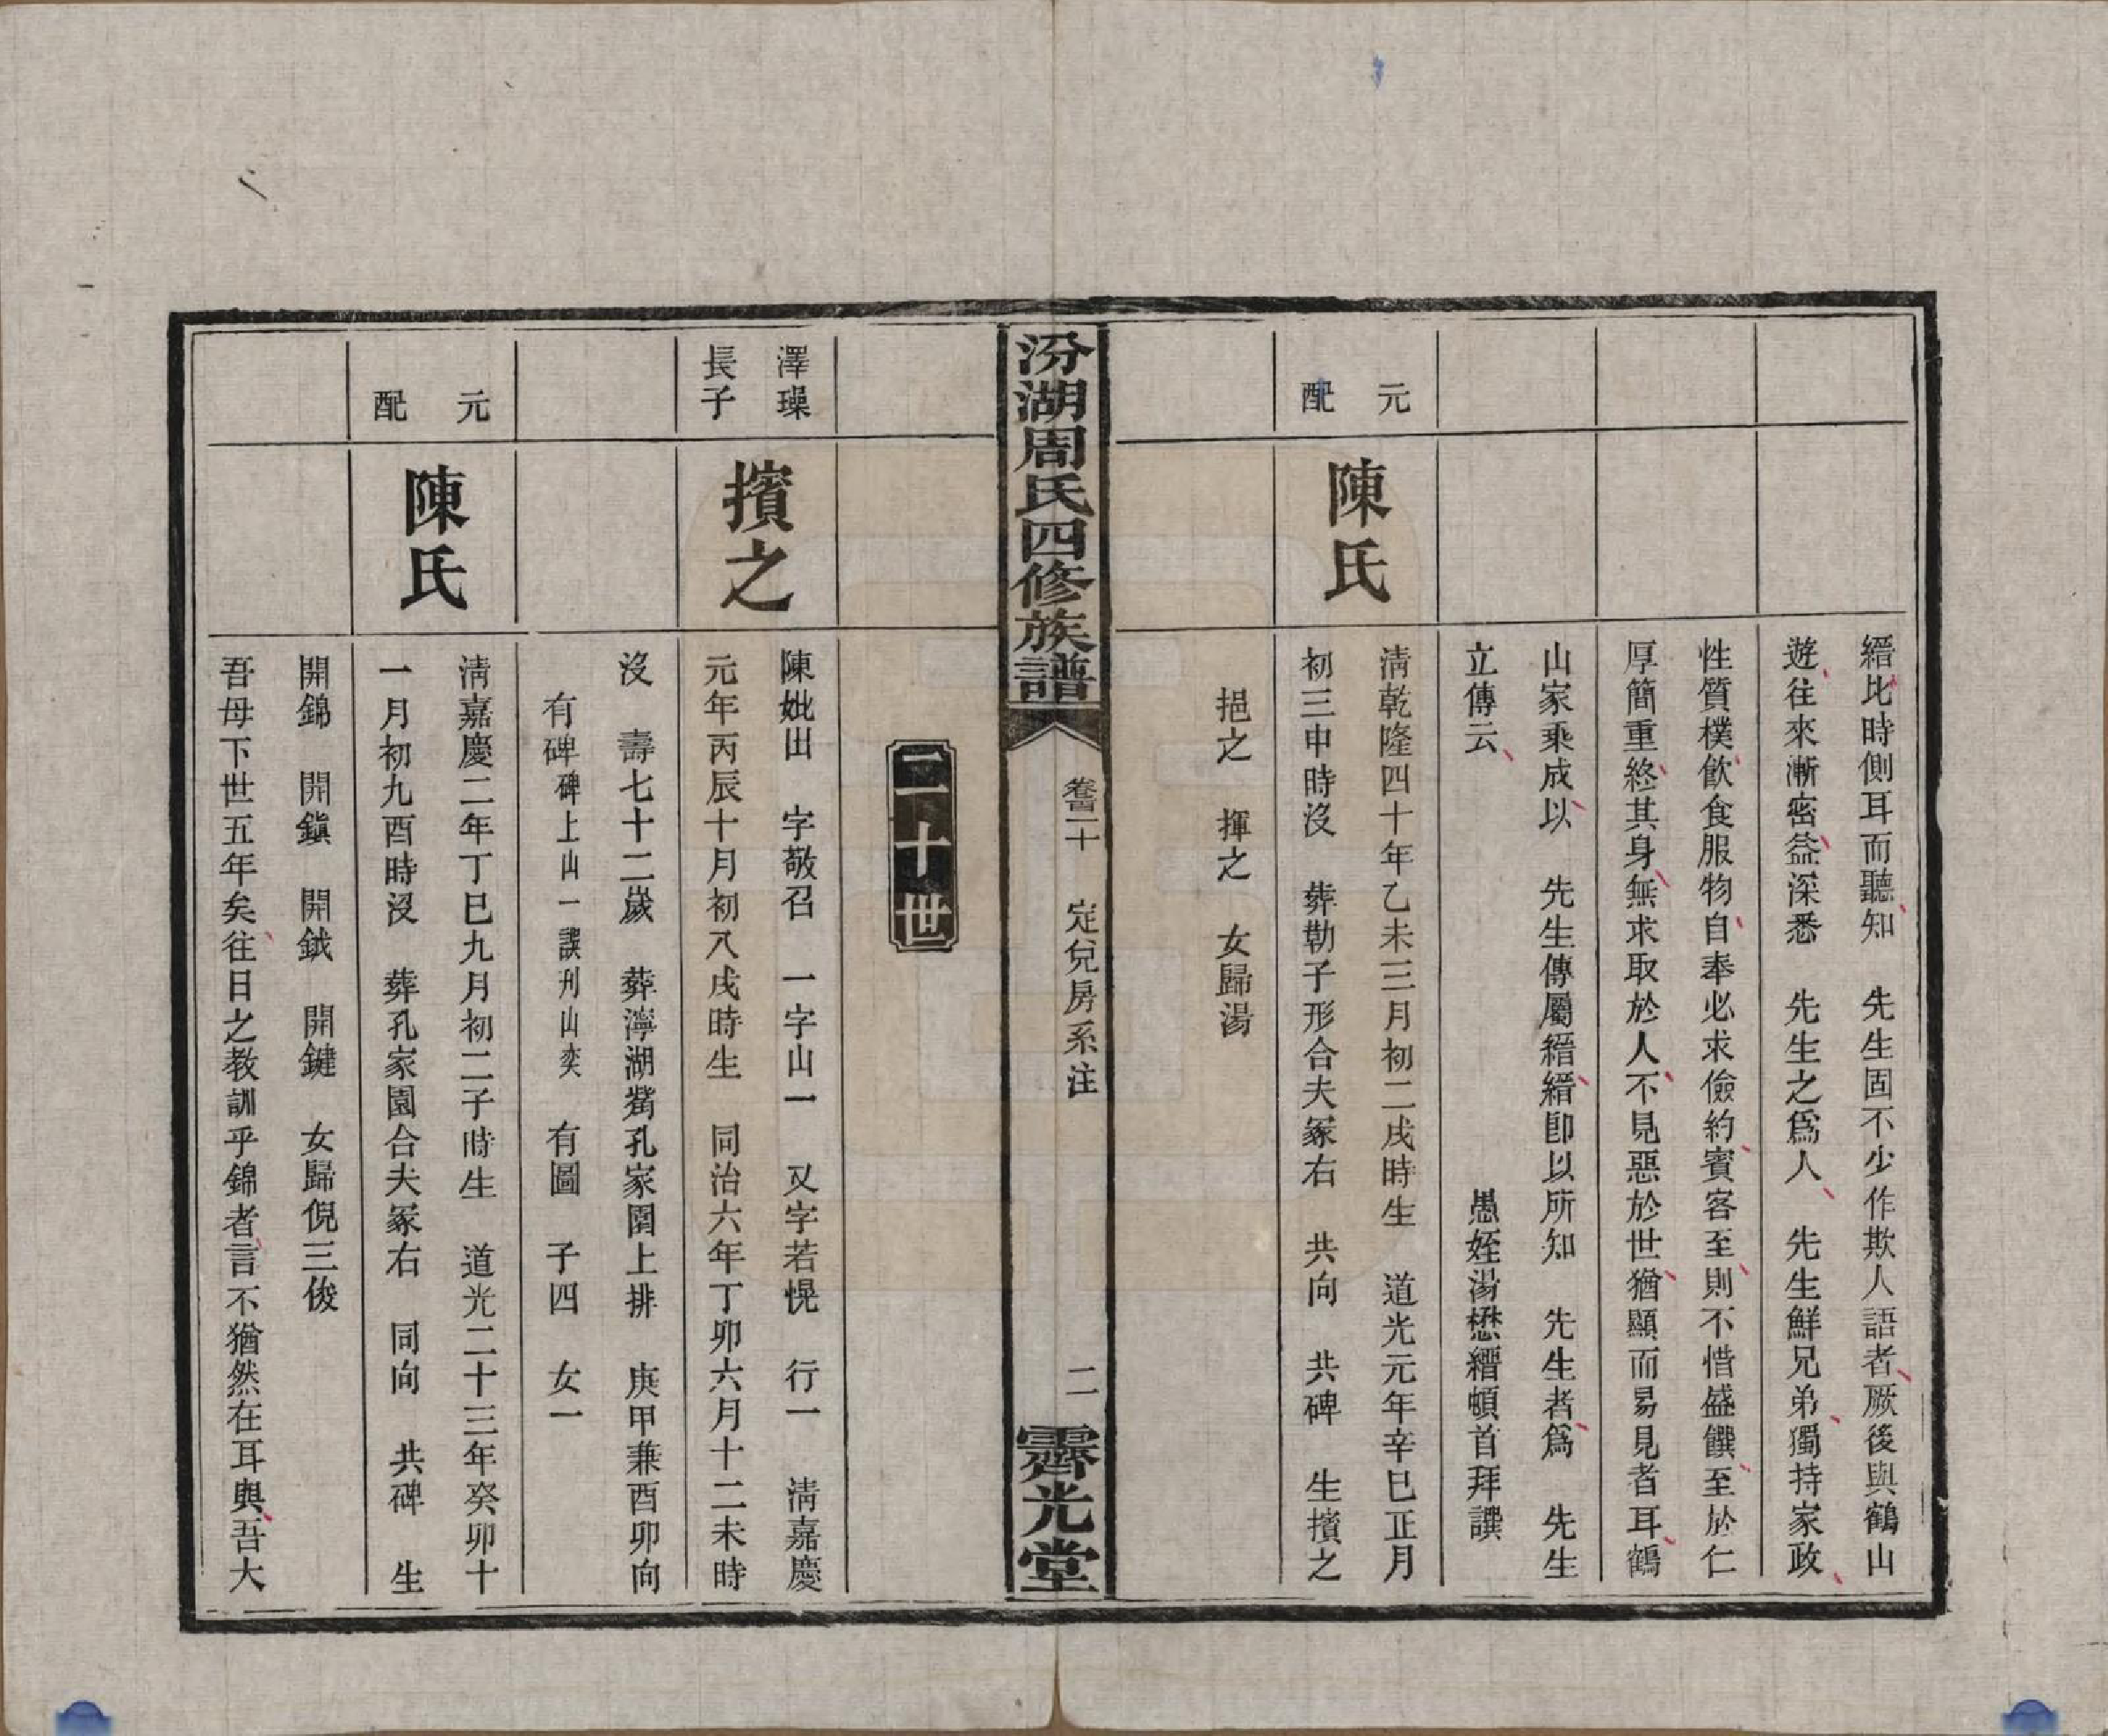 縉比時側耳而聽知　先生固不少作欺人語者厥後與鶴山
遊往來漸密益深悉　先生之爲人　先生鮮兄弟獨持家政
性質樸飲食服物自奉必求儉約賓客至則不惜盛饌至於仁
厚簡重終其身無求取於人不見惡於世猶顯而易見者耳鶴
山家乘成以　先生傳屬縉縉卽以所知　先生者爲　先生
立傳云
愚姪湯懋縉頓首拜譔
元配
陳氏
淸乾隆四十年乙未三月初二戌時生　道光元年辛巳正月
初三申時沒　葬勒子形合夫冢右　共向　共碑　生擯之
挹之　揮之　女歸湯
汾湖周氏四修族譜
卷二十　定兌房系注
二
霽光堂
二十世
澤璪長子
擯之
陳妣出　字敬召　一字山一　又字若愰　行一　淸嘉慶
元年丙辰十月初八戌時生　同治六年丁卯六月十二未時
沒　壽七十二歲　葬濘湖觜孔家園上排　庚甲兼酉卯向
有碑碑上山一誤刋山奕　有圖　子四　女一
元配
陳氏
淸嘉慶二年丁巳九月初二子時生　道光二十三年癸卯十
一月初九酉時沒　葬孔家園合夫冢右　同向　共碑　生
開錦　開鎭　開鉞　開鍵　女歸倪三俊
吾母下世五年矣往日之教訓乎錦者言不猶然在耳與吾大